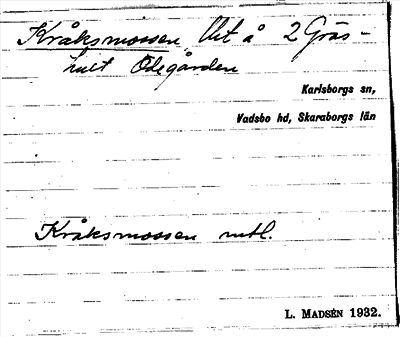 Kråksmossen, Ut å 2 Gräs-
mit Ödegården
Karlsborgs sn,
Vadsbo hd, Skaraborgs län
Kråksmossen mtl.
L. MADSÉN 1932.